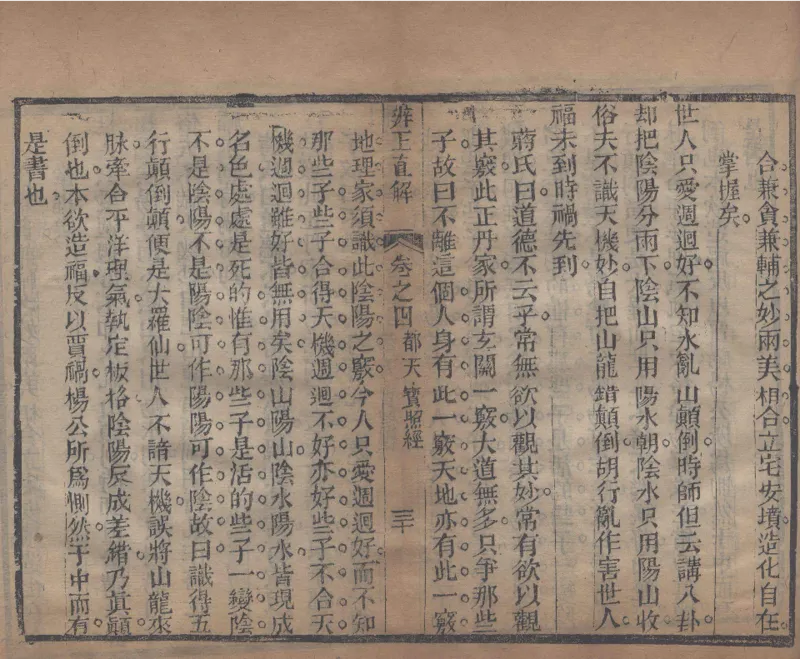 合兼貪兼輔之妙兩美相合立宅安墳造化自在
掌握矣
世人只愛週迴好不知水亂山顛倒時師但云講八卦
却把陰陽分兩下陰山只用陽水朝陰水只用陽山收
俗夫不識天機妙自把山龍錯顛倒胡行亂作害世人
福未到時禍先到
蔣氏曰道德不云乎常無欲以觀其妙常有欲以觀
其竅此正丹家所謂玄關一竅大道無多只爭那些
子故曰不離這個人身有此一竅天地亦有此一竅
辨正直解 卷之四 都天寶照經 三十
地理家須識此陰陽之竅今人只愛週迴好而不知
那些子些子合得天機週迴不好亦好些子不合天
機週迴雖好皆無用矣陰山陽山陰水陽水皆現成
名色處處是死的惟有那些子是活的些子一變陰
不是陰陽不是陽陰可作陽陽可作陰故曰識得五
行顛倒顛便是大羅仙世人不諳天機誤將山龍來
脉牽合平洋理氣執定板格陰陽反成差錯乃眞顛
倒也本欲造福反以賈禍楊公所爲惻然于中而有
是書也